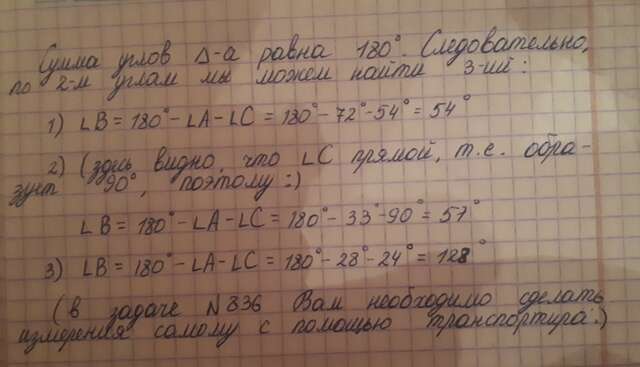 Сумма углов Δ-а равна 180°. Следовательно,
по 2-м углам мы можем найти 3-ий:
1) ∠B = 180° - ∠A - ∠C = 180° - 72° - 54° = 54°
2) (здесь видно, что ∠C прямой, т.е. обра-
зует 90°, поэтому:)
∠B = 180° - ∠A - ∠C = 180° - 33° - 90° = 57°
3) ∠B = 180° - ∠A - ∠C = 180° - 28° - 24° = 128°
(в задаче №836 Вам необходимо сделать
измерения самому с помощью транспортира.)